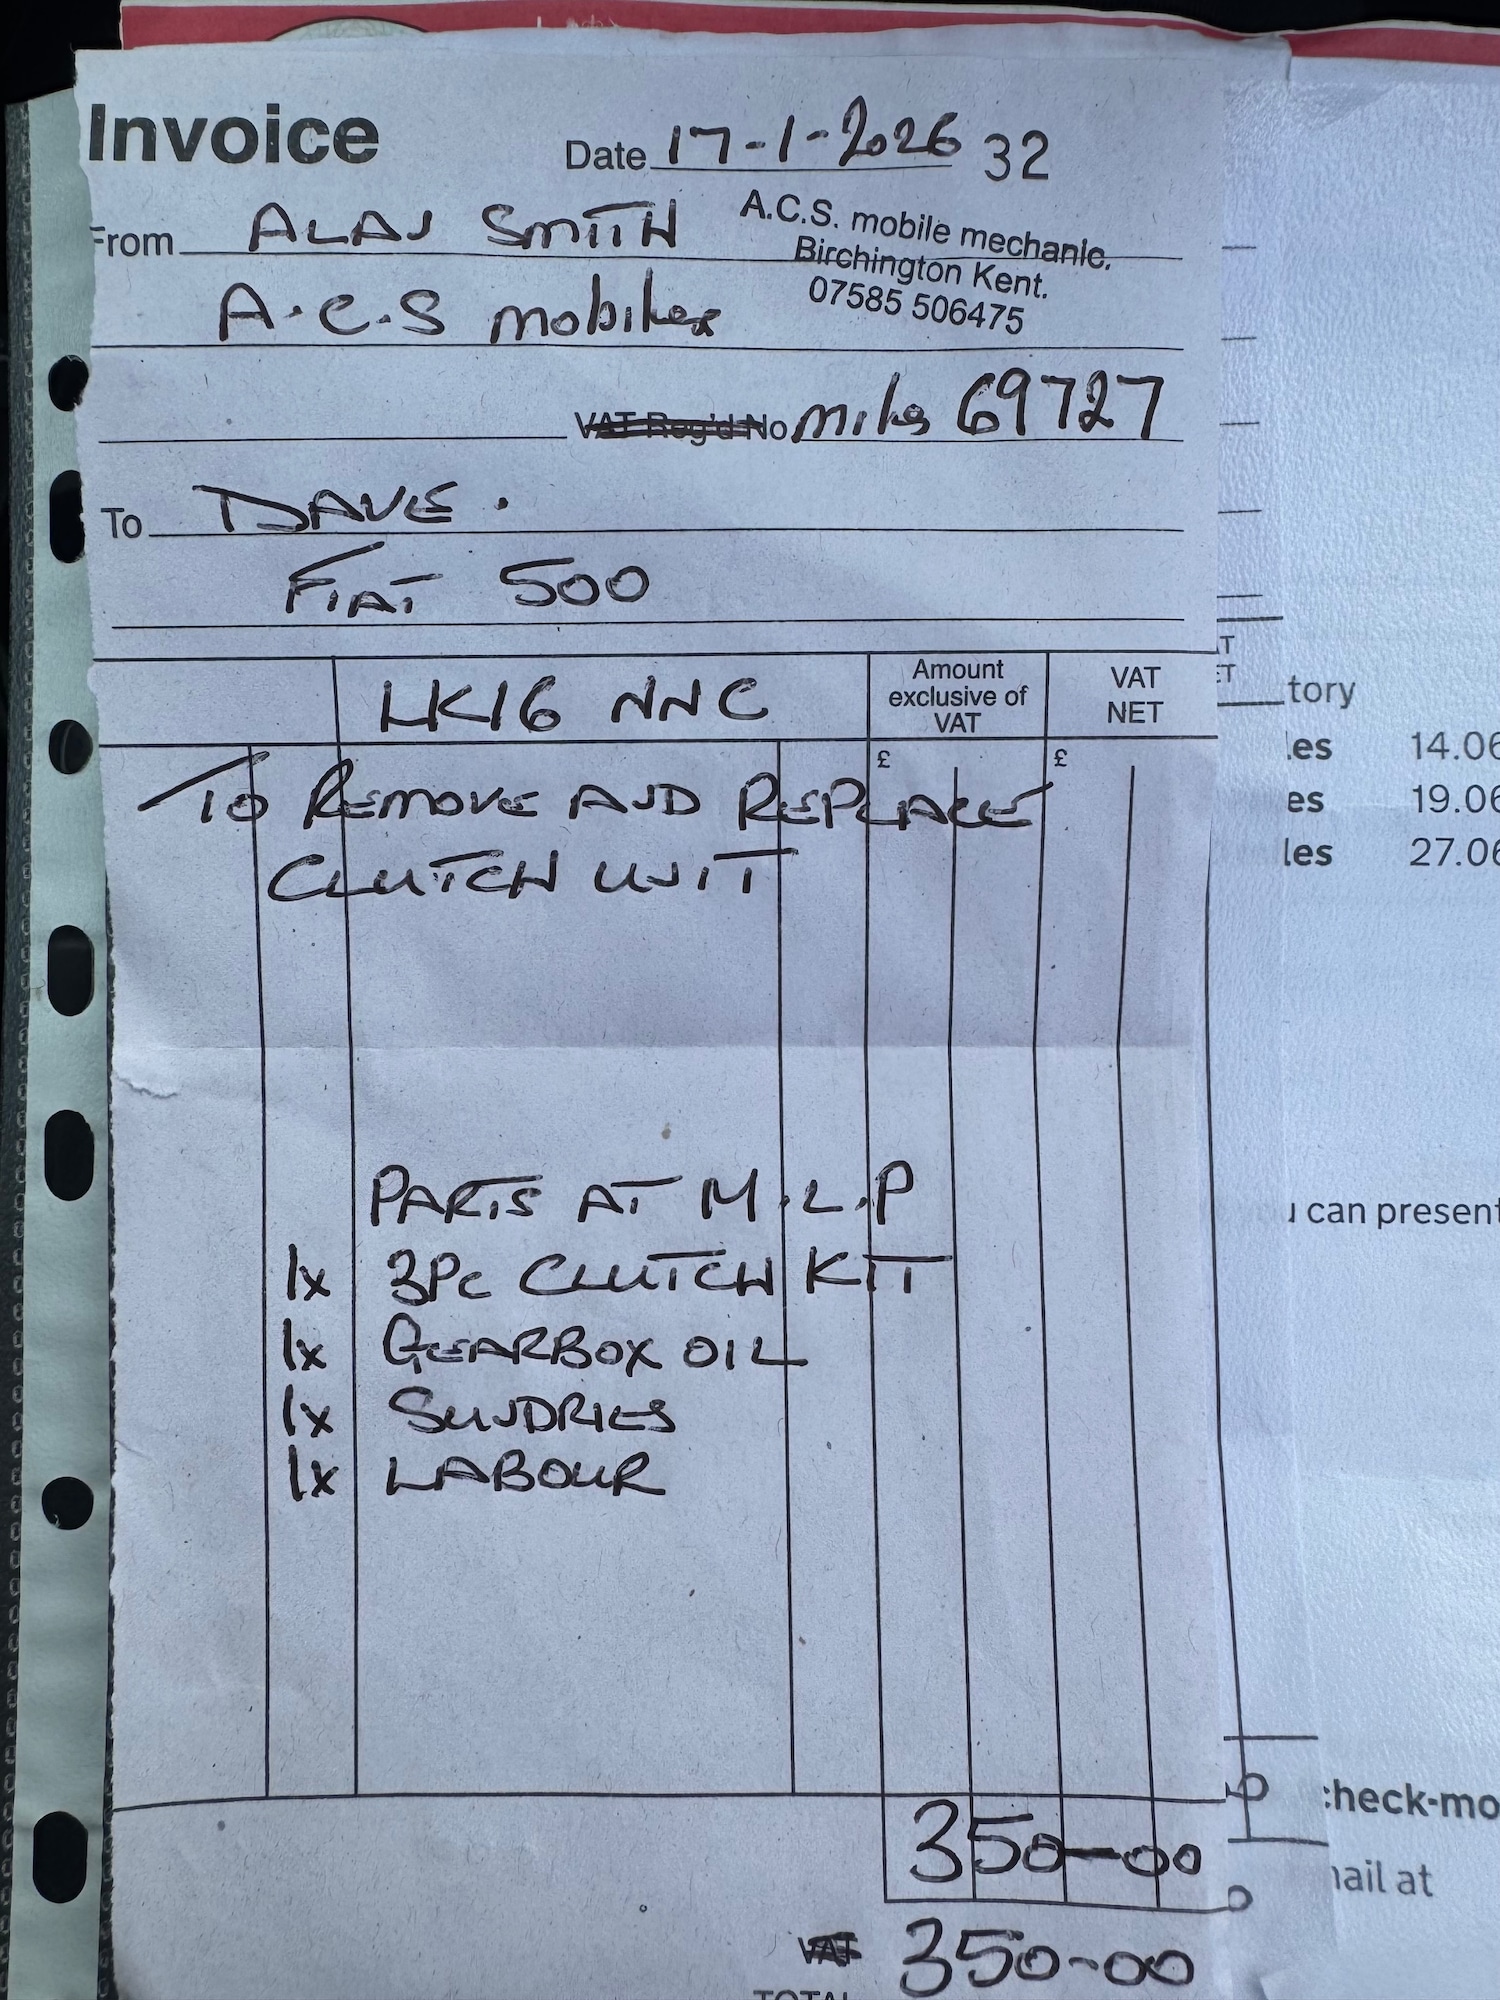 Invoice
Date 17-1-2026 32
From ALAN SMITH
A.C.S. mobile mechanic.
Birchington Kent.
07585 506475
A.C.S mobiles
VAT Reg'd No miles 69727
To DAVE.
FIAT 500
LK16 NNC
Amount exclusive of VAT
VAT NET
£ £
TO REMOVE AND REPLACE
CLUTCH UNIT
PARTS AT M.L.P
1x 3Pc CLUTCH KIT
1x GEARBOX OIL
1x SUNDRIES
1x LABOUR
350-00
VAT 350-00
TOTAL
tory
les 14.06
es 19.06
les 27.06
u can present
check-mo
ail at